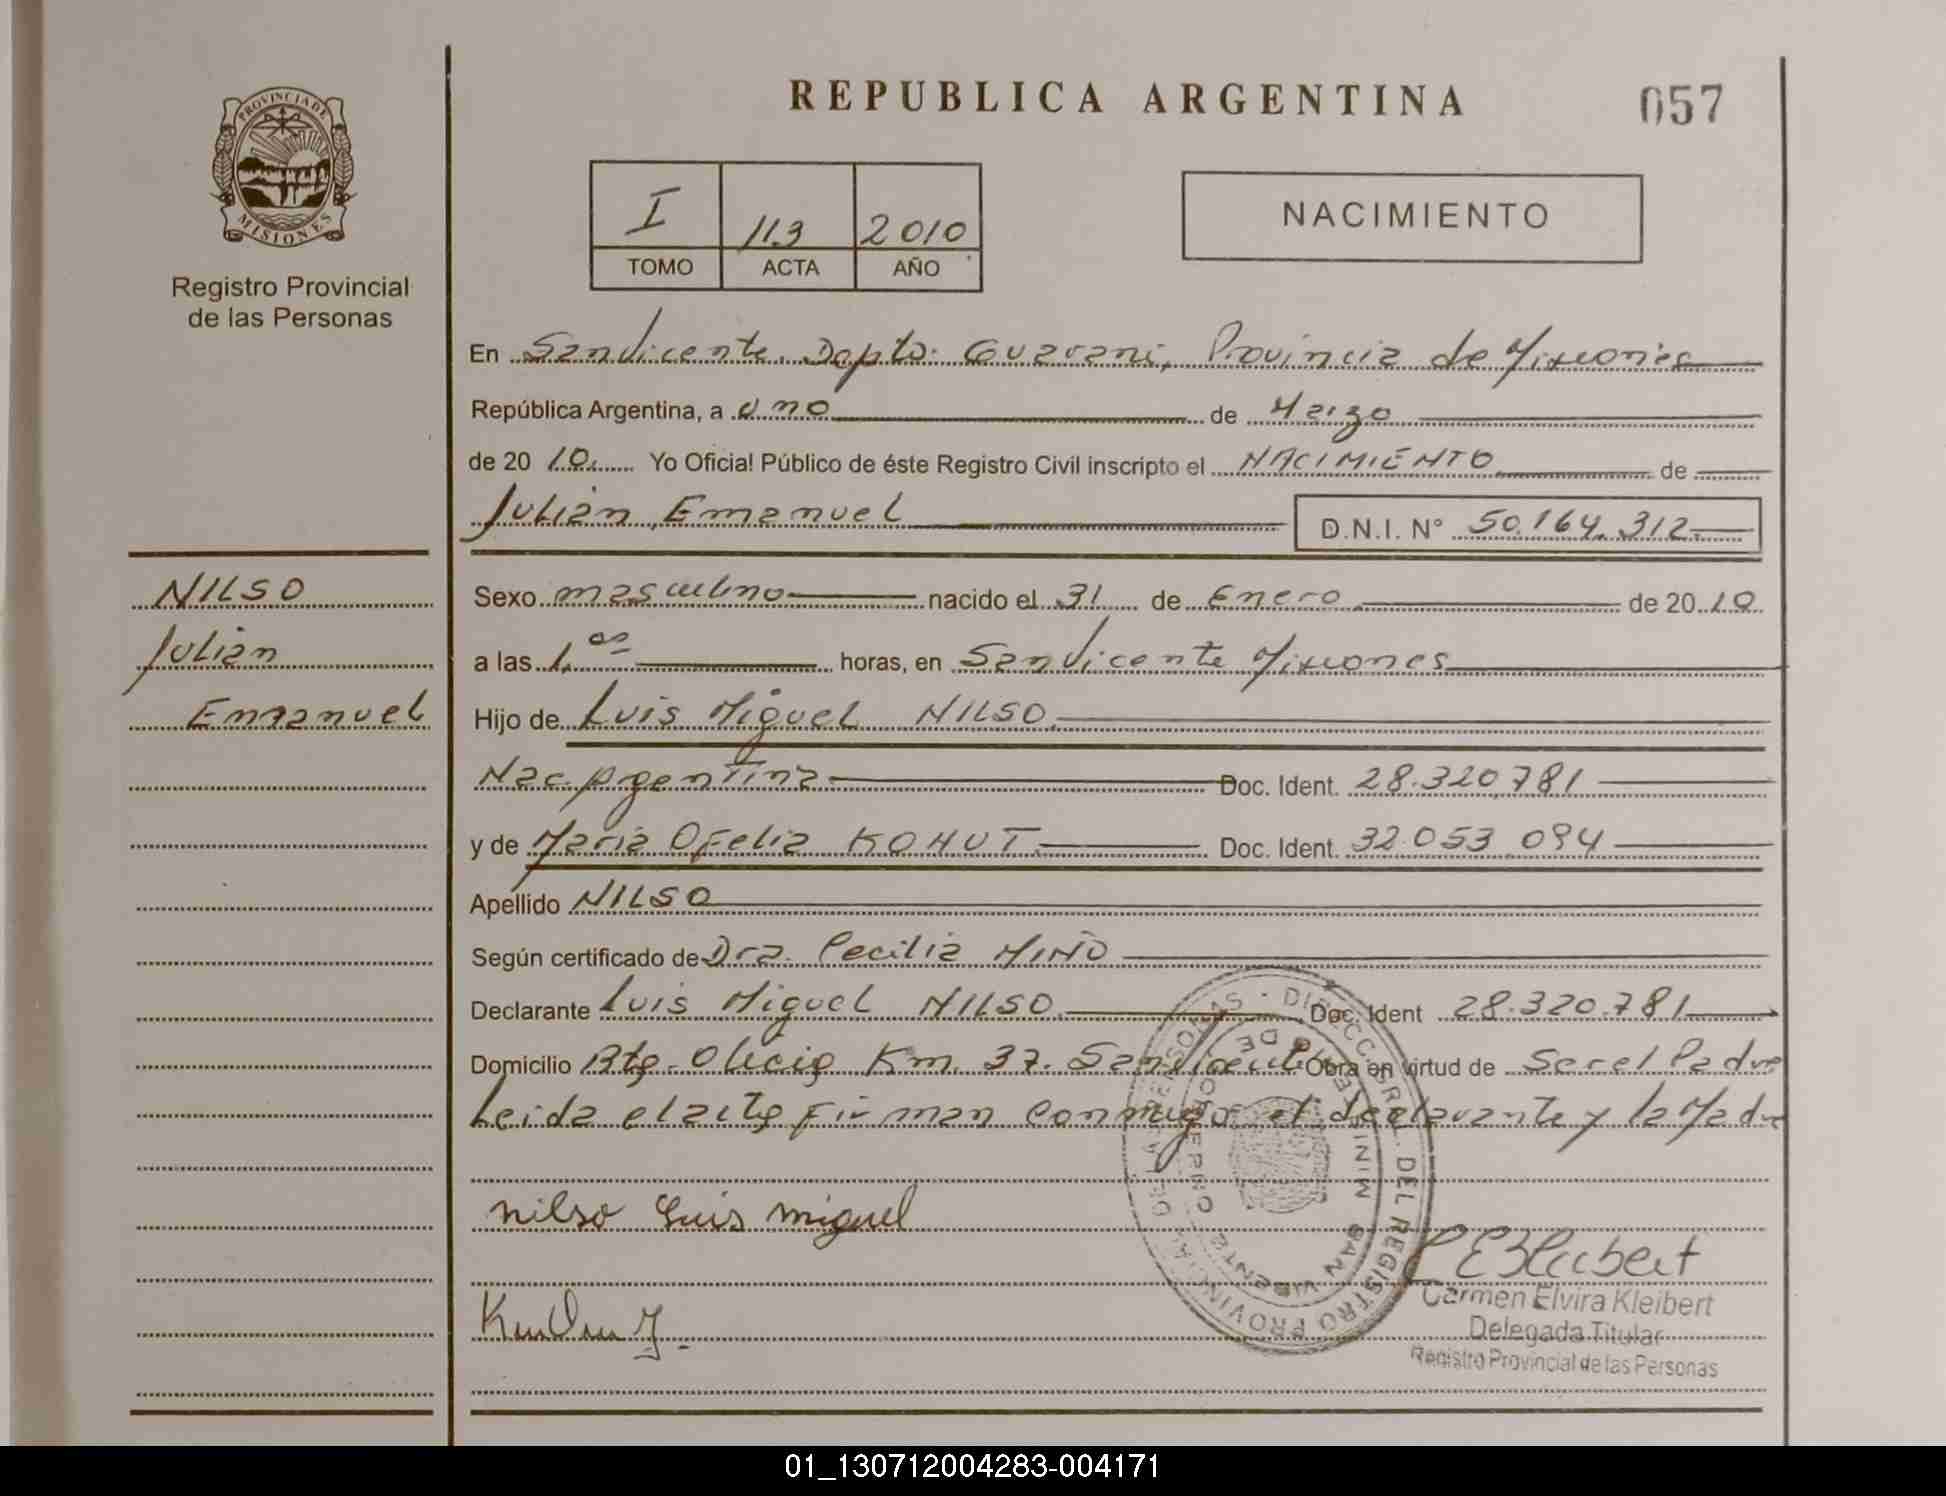 REPUBLICA ARGENTINA
057
PROVINCIA DE MISIONES
Registro Provincial
de las Personas
I 113 2010
TOMO ACTA AÑO
NACIMIENTO
En San Vicente. Dopto. Guarani, Provincia de Misiones
República Argentina, a uno de Marzo
de 20 10. Yo Oficial Público de éste Registro Civil inscripto el NACIMIENTO de
Julian Emanuel D.N.I. N° 50.164.312.
NILSO
Julian
Emanuel
Sexo masculino nacido el 31 de Enero de 20 10
a las 1. as horas, en San Vicente Misiones
Hijo de Luis Miguel NILSO.
Nac. Argentina Doc. Ident. 28.320.781
y de Maria Ofelia KOHUT. Doc. Ident. 32.053.094
Apellido NILSO
Según certificado de Dra. Cecilia MIÑO
Declarante Luis Miguel NILSO. Doc. Ident 28.320.781
Domicilio Km. 37. San Vicente Obra en virtud de Ser el Padre
Leida el acta firman conmigo el declarante y la Madre
Nilso Luis Miguel
Carmen Elvira Kleibert
Delegada Titular
Registro Provincial de las Personas
DIRECC. GRAL. DEL REGISTRO PROVINCIAL DE LAS PERSONAS
SAN VICENTE
01_130712004283-004171